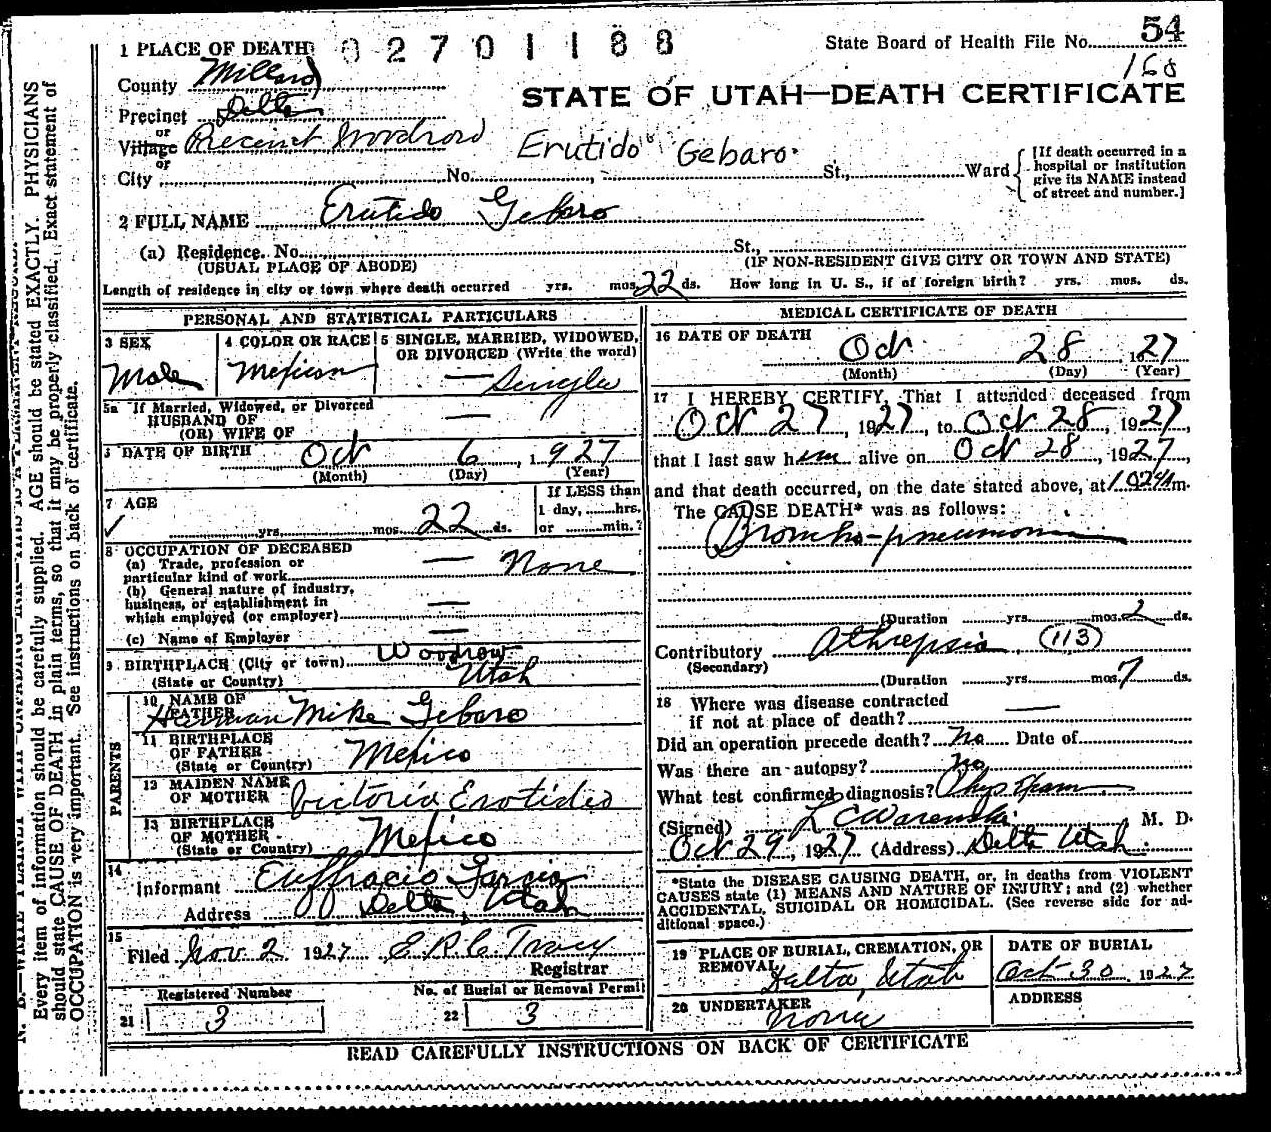 1 PLACE OF DEATH 02701188
State Board of Health File No. 54
168
County Millard
STATE OF UTAH—DEATH CERTIFICATE
Precinct Delta
or
Village Precinct Woodrow
Erutido Gebaro
or
City No. St., Ward
[If death occurred in a hospital or institution give its NAME instead of street and number.]
2 FULL NAME Erutido Gebaro
(a) Residence. No. St.,
(USUAL PLACE OF ABODE) (IF NON-RESIDENT GIVE CITY OR TOWN AND STATE)
Length of residence in city or town where death occurred yrs. mos. 22 ds. How long in U. S., if of foreign birth? yrs. mos. ds.
PERSONAL AND STATISTICAL PARTICULARS
3 SEX 4 COLOR OR RACE 5 SINGLE, MARRIED, WIDOWED, OR DIVORCED (Write the word)
Male Mexican — Single
5a If Married, Widowed, or Divorced
HUSBAND OF
(OR) WIFE OF —
DATE OF BIRTH Oct 6, 1927
(Month) (Day) (Year)
7 AGE
If LESS than
1 day, hrs.
yrs. mos. 22 ds. or min.?
8 OCCUPATION OF DECEASED
(a) Trade, profession or
particular kind of work — None
(b) General nature of industry,
business, or establishment in
which employed (or employer) —
(c) Name of Employer —
9 BIRTHPLACE (City or town) Woodrow
(State or Country) Utah
PARENTS
10 NAME OF
FATHER Herman Mike Gebaro
11 BIRTHPLACE
OF FATHER
(State or Country) Mexico
12 MAIDEN NAME
OF MOTHER Victoria Erotideo
13 BIRTHPLACE
OF MOTHER
(State or Country) Mexico
14
Informant Euffracio Garcia
Address Delta, Utah
15
Filed Nov. 2 1927 E.R.C. Tracy
Registrar
Registered Number No. of Burial or Removal Permit
21 3 22 3
MEDICAL CERTIFICATE OF DEATH
16 DATE OF DEATH
Oct 28 1927
(Month) (Day) (Year)
17 I HEREBY CERTIFY, That I attended deceased from
Oct 27, 1927, to Oct 28, 1927,
that I last saw him alive on Oct 28, 1927,
and that death occurred, on the date stated above, at m.
The CAUSE DEATH* was as follows:
Broncho-pneumonia
(Duration yrs. mos. 2 ds.
Contributory Athrepsia (113)
(Secondary)
(Duration yrs. mos. 7 ds.
18 Where was disease contracted
if not at place of death? —
Did an operation precede death? no Date of
Was there an autopsy? no
What test confirmed diagnosis? Phys Exam
(Signed) M. D.
Oct 29, 1927 (Address) Delta Utah
*State the DISEASE CAUSING DEATH, or, in deaths from VIOLENT
CAUSES state (1) MEANS AND NATURE OF INJURY; and (2) whether
ACCIDENTAL, SUICIDAL OR HOMICIDAL. (See reverse side for additional space.)
19 PLACE OF BURIAL, CREMATION, OR
REMOVAL Delta, Utah
DATE OF BURIAL
Oct 30 1927
20 UNDERTAKER
None
ADDRESS
READ CAREFULLY INSTRUCTIONS ON BACK OF CERTIFICATE
Every item of information should be carefully supplied. AGE should be stated EXACTLY. PHYSICIANS
should state CAUSE OF DEATH in plain terms, so that it may be properly classified. Exact statement of
OCCUPATION is very important. See instructions on back of certificate.